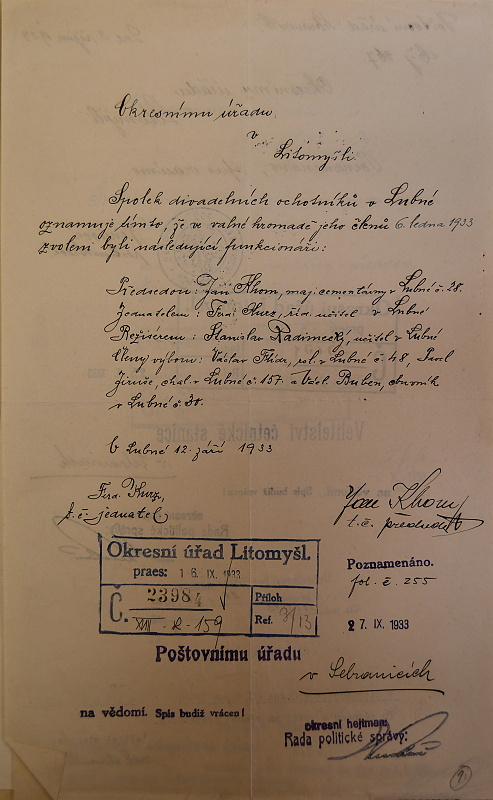 Okresnímu úřadu
v
Litomyšli.
Spolek divadelních ochotníků v Lubné
oznamuje tímto, že ve valné hromadě jeho členů 6. ledna 1933
zvoleni byli následující funkcionáři:
Předsedou: Jan Khom, maj. cementárny v Lubné č. 28.
Jednatelem: Ferd. Kurz, říd. učitel v Lubné
Režisérem: Stanislav Radimecký, učitel v Lubné
Členy výboru: Václav Flídr, rol. v Lubné č. 48, Josef
Jiruše, chal. v Lubné č. 157. a Václ. Buben, obuvník
v Lubné č. 30.
V Lubné 12. září 1933
Ferd. Kurz,
t. č. jednatel
Jan Khom
t. č. předseda
Okresní úřad Litomyšl.
praes: 16. IX. 1933
Č. 23984
XVII - R - 159
Příloh
Ref. 3/13
Poznamenáno.
fol. č. 255
27. IX. 1933
Poštovnímu úřadu
v Sebranicích
na vědomí. Spis budiž vrácen!
okresní hejtman:
Rada politické správy:
9.